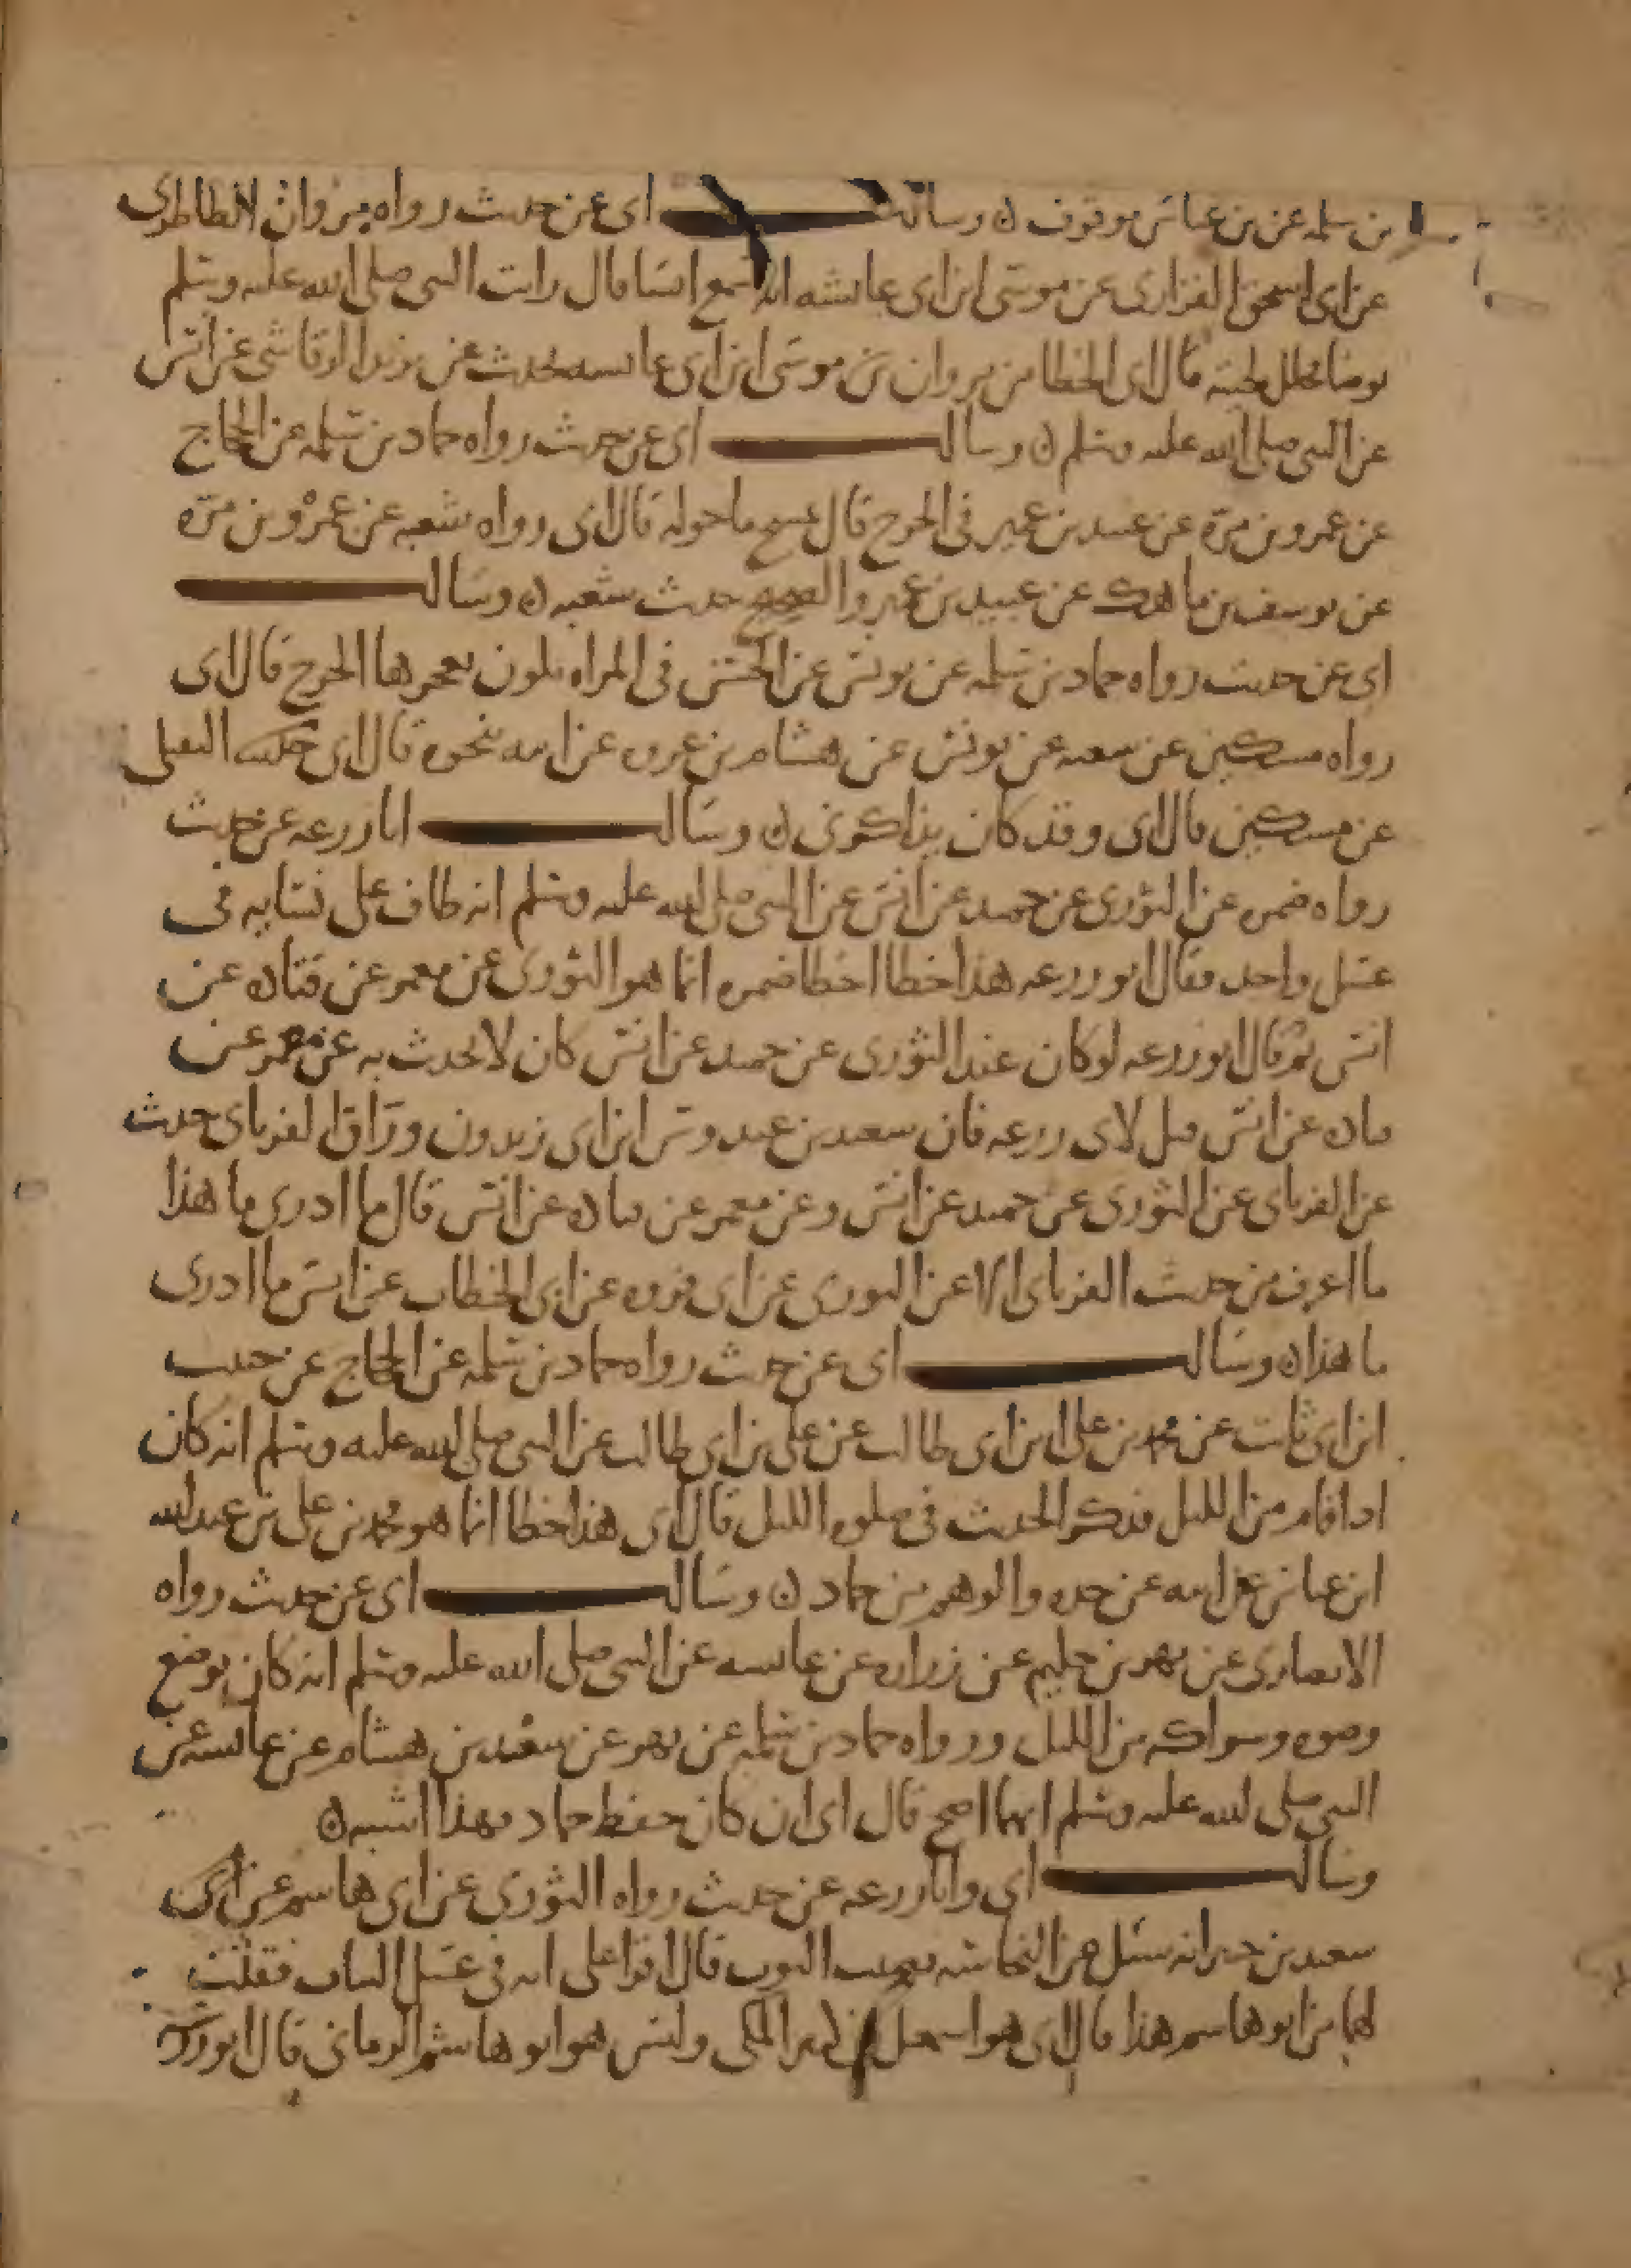 بن سلمه عن بن عباس موقوف ه وسالت ابى عن حديث رواه مروان الطاطرى
عن ابى اسحق الفزارى عن موسى ابن ابى عايشه انه سمع انسا قال رايت النبى صلى الله عليه وسلم
توضا فخلل لحيته قال ابى الخطا من مروان بن موسى ابن ابى عايشه يحدث عن يزيد الرقاشى عن انس
عن النبى صلى الله عليه وسلم ه وسالت ابى عن حديث رواه حماد بن سلمه عن الحجاج
عن عمرو بن مره عن عبيد بن عمير فى الجرح قال يمسح ما حوله قال ابى رواه شعبه عن عمرو بن مره
عن يوسف بن ماهك عن عبيد بن عمير والصحيح حديث شعبه ه وسالت
ابى عن حديث رواه حماد بن سلمه عن يونس عن الحسن فى المراه يكون بحجرها الجرح قال ابى
رواه مسكين عن شعبه عن يونس عن هشام بن عروه عن ابيه نحوه قال ابى حكيت النفيلى
عن مسكين قال ابى وقد كان يذاكرنى ه وسالت ابا زرعه عن حديث
رواه ضمره عن الثورى عن حميد عن انس عن النبى صلى الله عليه وسلم انه طاف على نسايه فى
غسل واحد فقال ابو زرعه هذا خطا اخطا ضمره انما هو الثورى عن معمر عن قتاده عن
انس ثم قال ابو زرعه لو كان عند الثورى عن حميد عن انس كان لا يحدث به عن معمر عن
قتاده عن انس قيل لابى زرعه فان سعيد بن عبدوس ابن ابى زيدون وراق الفريابى حدث
عن الفريابى عن الثورى عن حميد عن انس وعن معمر عن قتاده عن انس قال ما ادرى ما هذا
ما اعرف من حديث الفريابى الا عن الثورى عن ابى عروه عن ابى الخطاب عن انس ما ادرى
ما هذا ه وسالت ابى عن حديث رواه حماد بن سلمه عن الحجاج عن حبيب
ابن ابى ثابت عن محمد بن على ابن ابى طالب عن على بن ابى طالب عن النبى صلى الله عليه وسلم انه كان
اذا قام من الليل فذكر الحديث فى صلوه الليل قال ابى هذا خطا انما هو محمد بن على بن عبد الله
ابن عباس عن ابيه عن جده والوهم من حماد ه وسالت ابى عن حديث رواه
الانصارى عن بهز بن حكيم عن زراره عن عايشه عن النبى صلى الله عليه وسلم انه كان يوضع
وضوه وسواكه من الليل ورواه حماد بن سلمه عن بهز عن سعد بن هشام عن عايشه عن
النبى صلى الله عليه وسلم ايهما اصح قال ابى ان كان حفظ حماد فهذا اشبه ه
وسالت ابى وابا زرعه عن حديث رواه الثورى عن ابى هاشم عن
سعيد بن جبير انه سئل عن النجاسه تصيب الثوب قال اقرا على ايه فى غسل الثياب فقلت
لهما من ابو هاشم هذا قال ابى هو اسمعيل بن كثير المكى وليس هو ابو هاشم الرمانى قال ابو زرعه